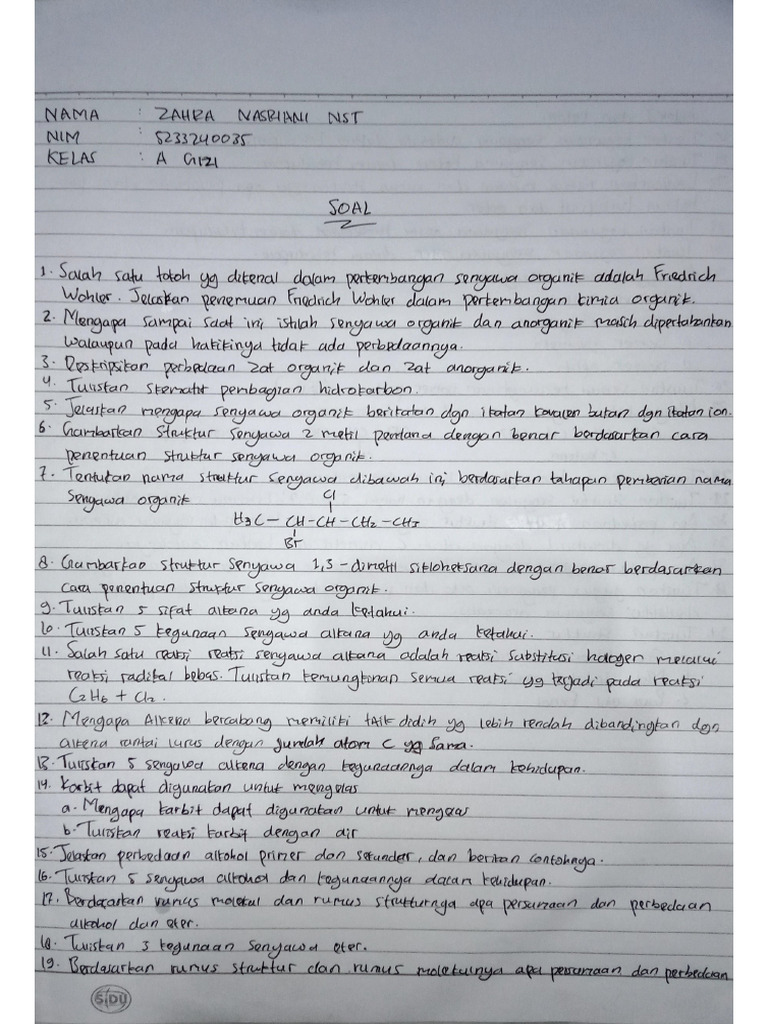 NAMA : ZAHRA NASRIANI NST
NIM : 5233240035
KELAS : A GIZI
SOAL
1. Salah satu tokoh yg dikenal dalam perkembangan senyawa organik adalah Friedrich
Wohler. Jelaskan penemuan Friedrich Wohler dalam perkembangan kimia organik.
2. Mengapa sampai saat ini istilah senyawa organik dan anorganik masih dipertahankan
walaupun pada hakikinya tidak ada perbedaannya.
3. Deskripsikan perbedaan zat organik dan zat anorganik.
4. Tuliskan skematik pembagian hidrokarbon.
5. Jelaskan mengapa senyawa organik berikatan dgn ikatan kovalen bukan dgn ikatan ion.
6. Gambarkan struktur senyawa 2 metil pentana dengan benar berdasarkan cara
penentuan struktur senyawa organik.
7. Tentukan nama struktur senyawa dibawah ini berdasarkan tahapan pemberian nama
senyawa organik
Cl
H3C - CH - CH - CH2 - CH3
Br
8. Gambarkan struktur senyawa 1,3-dimetil sikloheksana dengan benar berdasarkan
cara penentuan struktur senyawa organik.
9. Tuliskan 5 sifat alkana yg anda ketahui.
10. Tuliskan 5 kegunaan senyawa alkana yg anda ketahui.
11. Salah satu reaksi reaksi senyawa alkana adalah reaksi substitusi halogen melalui
reaksi radikal bebas. Tuliskan kemungkinan semua reaksi yg terjadi pada reaksi
C2H6 + Cl2.
12. Mengapa Alkena bercabang memiliki titik didih yg lebih rendah dibandingkan dgn
alkena rantai lurus dengan jumlah atom C yg sama.
13. Tuliskan 5 senyawa alkena dengan kegunaannya dalam kehidupan.
14. Karbit dapat digunakan untuk mengelas
a. Mengapa karbit dapat digunakan untuk mengelas
b. Tuliskan reaksi karbit dengan air
15. Jelaskan perbedaan alkohol primer dan sekunder, dan berikan contohnya.
16. Tuliskan 5 senyawa alkohol dan kegunaannya dalam kehidupan.
17. Berdasarkan rumus molekul dan rumus strukturnya apa persamaan dan perbedaan
alkohol dan eter.
18. Tuliskan 3 kegunaan senyawa eter.
19. Berdasarkan rumus struktur dan rumus molekulnya apa persamaan dan perbedaan
SIDU